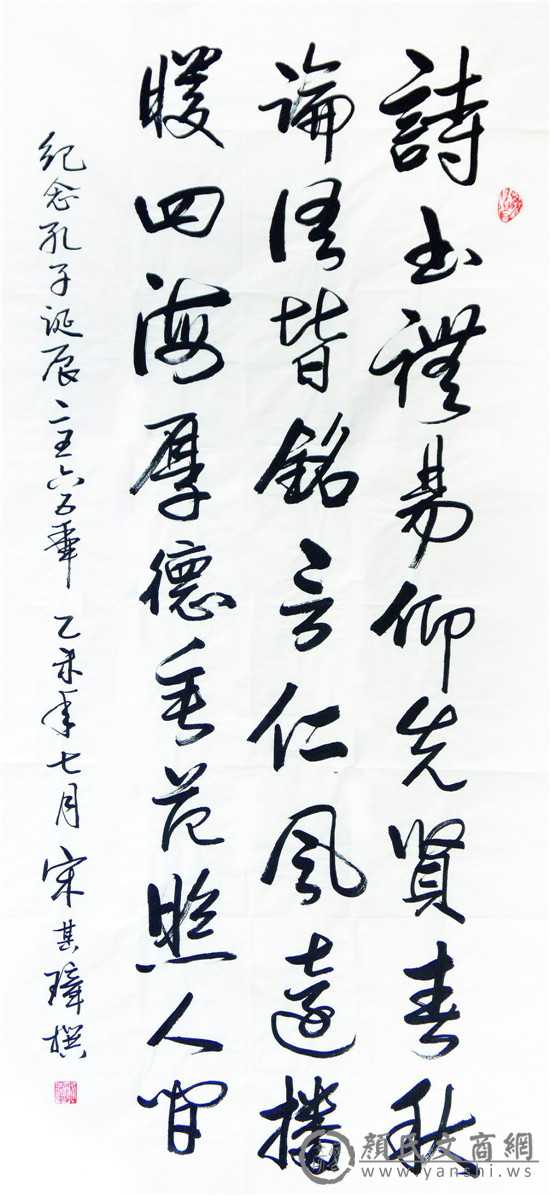 詩書禮易仰先賢春秋
論語皆銘言仁風遠播
暖四海厚德垂范照人間
紀念孔子誕辰二五六六年 乙未年七月 宋其璋撰
顏氏文商網
www.yanshi.ws